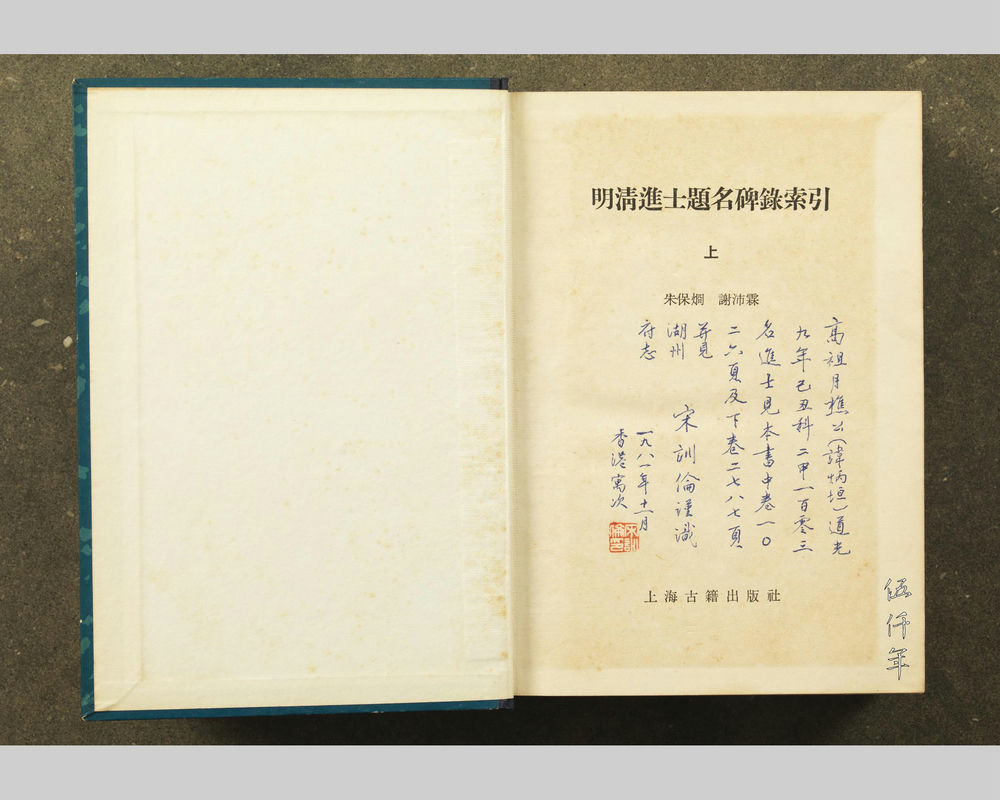 明清進士題名碑錄索引
上
朱保烱　謝沛霖
高祖月樵公(諱炳垣)道光
九年己丑科二甲一百零三
名進士見本書中卷一〇
二六頁及下卷二七八七頁
并見
湖州
府志
宋訓倫謹識
一九八一年十一月
香港寓次
上海古籍出版社
伍仟年